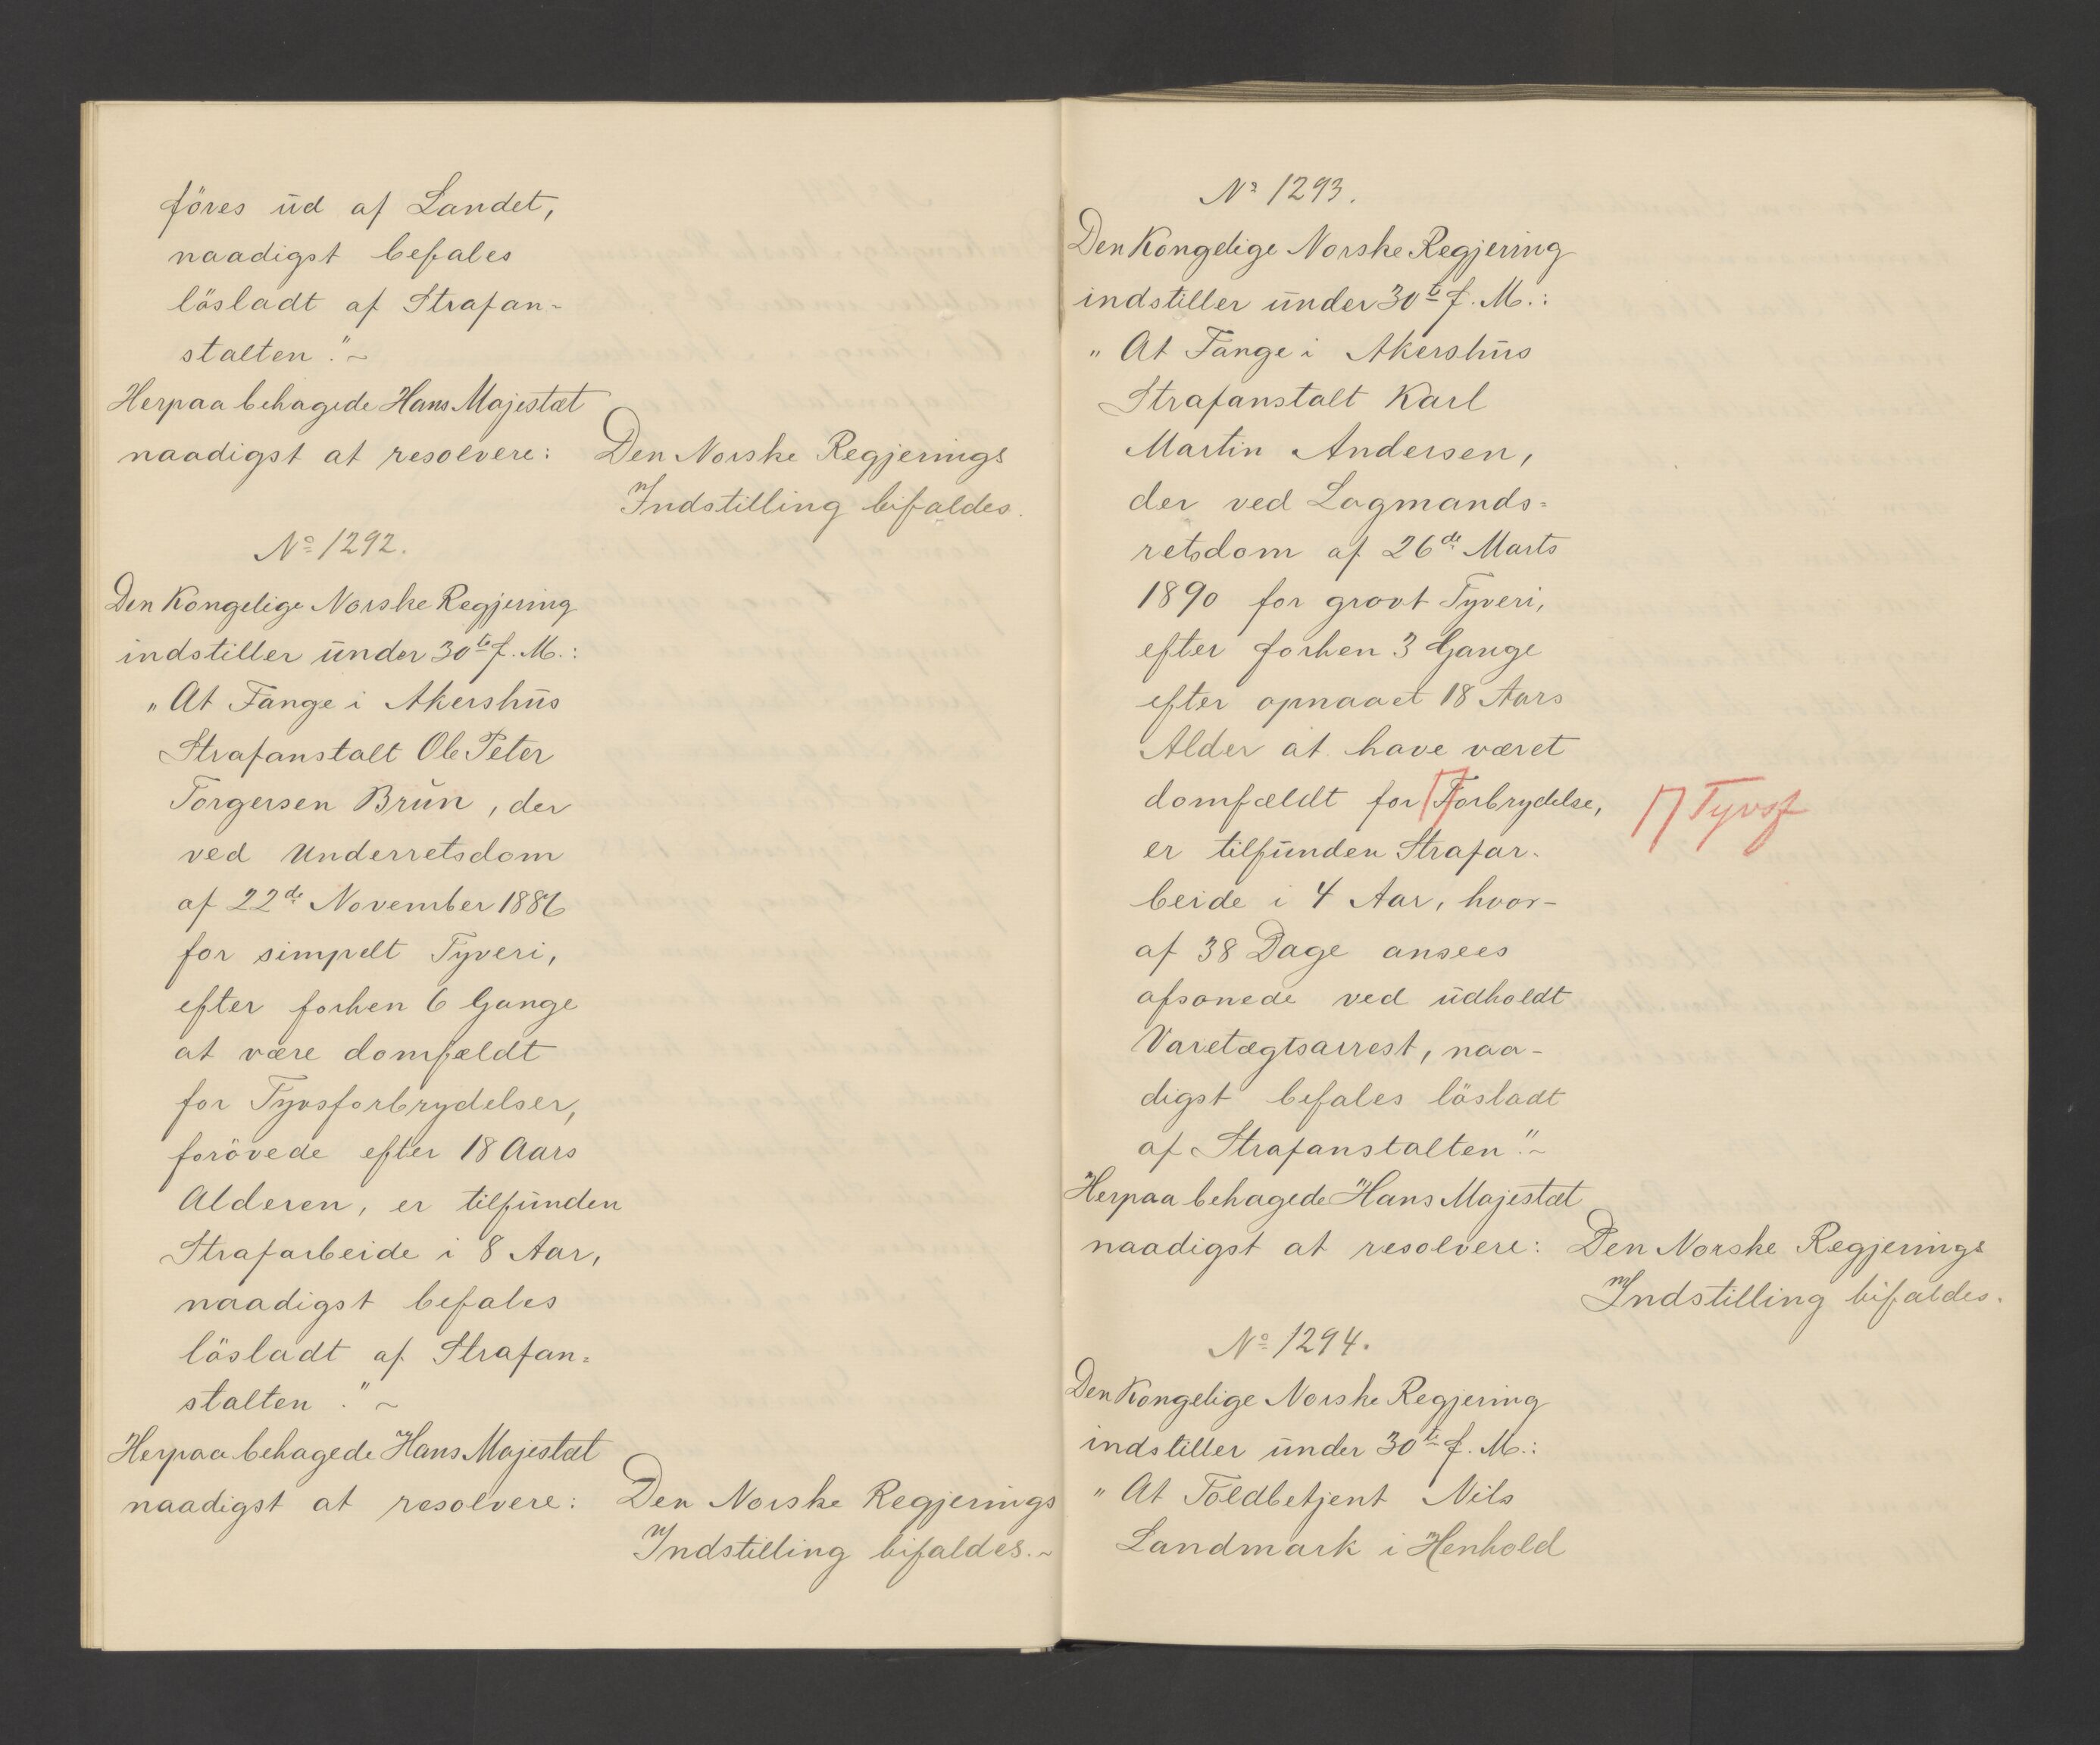 föres ud af Landet,
naadigst befales
lösladt af Strafan-
stalten." ~
Herpaa behagede Hans Majestæt
naadigst at resolvere: Den Norske Regjerings
Indstilling bifaldes.
No 1292.
Den Kongelige Norske Regjering
indstiller under 30te f. M.:
"At Fange i Akershus
Strafanstalt Ole Peter
Torgersen Brun, der
ved Underretsdom
af 22de November 1886
for simpelt Tyveri,
efter forhen 6 Gange
at være domfældt
for Tyvsforbrydelser,
forövede efter 18 Aars
Alderen, er tilfunden
Strafarbeide i 8 Aar,
naadigst befales
lösladt af Strafan=
stalten." ~
Herpaa behagede Hans Majestæt
naadigst at resolvere: Den Norske Regjerings
Indstilling bifaldes. ~
No 1293.
Den Kongelige Norske Regjering
indstiller under 30te f. M.:
"At Fange i Akershus
Strafanstalt Karl
Martin Andersen,
der ved Lagmands=
retsdom af 26de Marts
1890 for grovt Tyveri,
efter forhen 3 Gange
efter opnaaet 18 Aars
Alder at have været
domfældt for Forbrydelse, Tyvsf
er tilfunden Strafar-
beide i 4 Aar, hvor-
af 38 Dage ansees
afsonede ved udholdt
Varetægtsarrest, naa-
digst befales lösladt
af Strafanstalten." ~
Herpaa behagede Hans Majestæt
naadigst at resolvere: Den Norske Regjerings
Indstilling bifaldes.
No 1294.
Den Kongelige Norske Regjering
indstiller under 30te f. M.:
"At Toldbetjent Nils
Landmark i Henhold